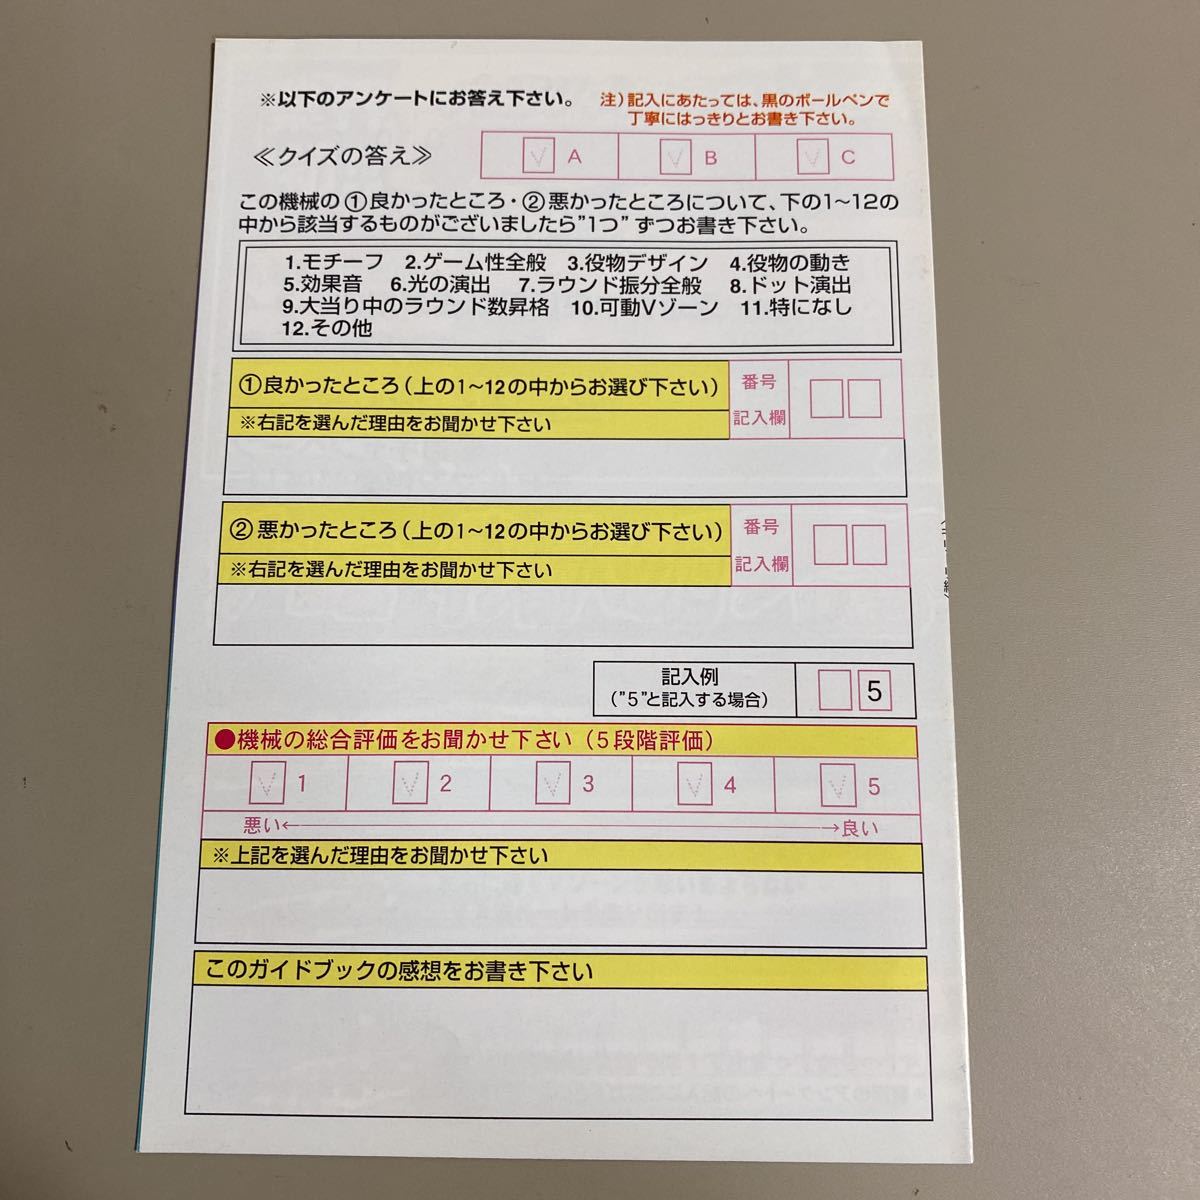 ※以下のアンケートにお答え下さい。
注）記入にあたっては、黒のボールペンで
丁寧にはっきりとお書き下さい。
≪クイズの答え≫
A B C
この機械の①良かったところ・②悪かったところについて、下の1〜12の
中から該当するものがございましたら”1つ”ずつお書き下さい。
1.モチーフ 2.ゲーム性全般 3.役物デザイン 4.役物の動き
5.効果音 6.光の演出 7.ラウンド振分全般 8.ドット演出
9.大当り中のラウンド数昇格 10.可動Vゾーン 11.特になし
12.その他
①良かったところ（上の1〜12の中からお選び下さい）
番号
記入欄
※右記を選んだ理由をお聞かせ下さい
②悪かったところ（上の1〜12の中からお選び下さい）
番号
記入欄
※右記を選んだ理由をお聞かせ下さい
記入例
（”5”と記入する場合）
5
●機械の総合評価をお聞かせ下さい（5段階評価）
1 2 3 4 5
悪い←→良い
※上記を選んだ理由をお聞かせ下さい
このガイドブックの感想をお書き下さい